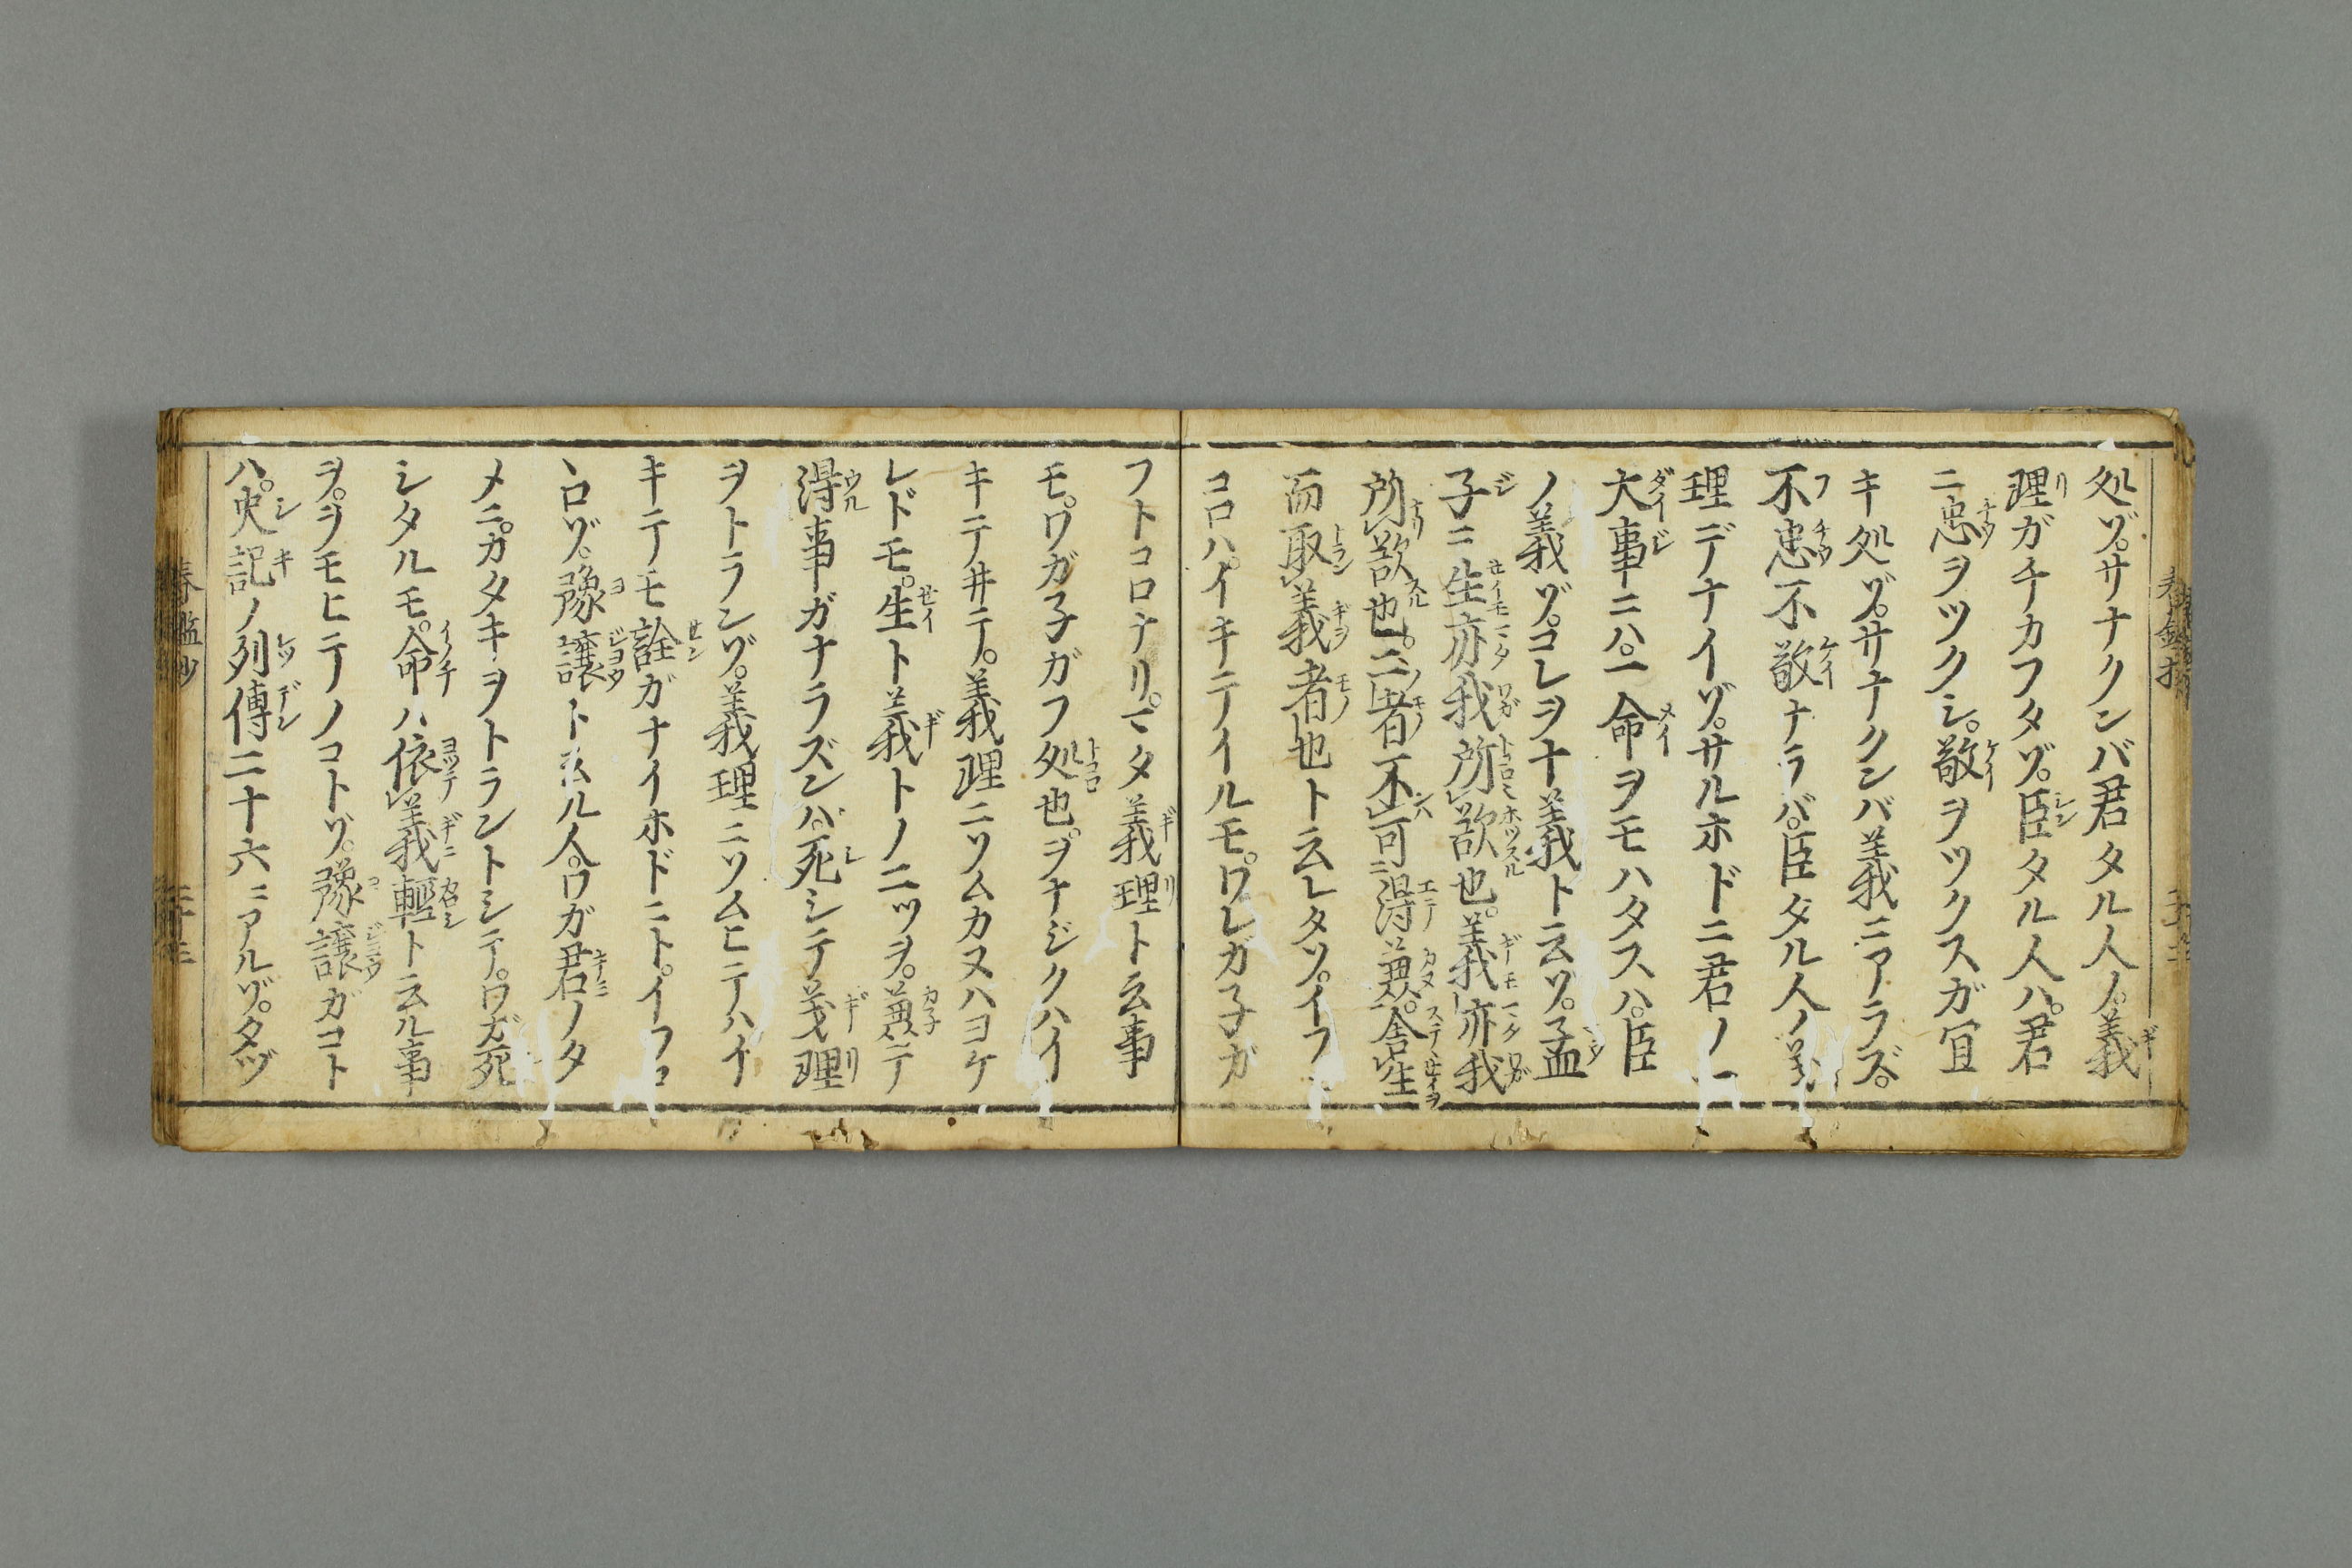 処ゾ。サナクンバ君タル人ノ義
理ガチカフタゾ。臣タル人ハ。君
ニ忠ヲツクシ。敬ヲツクスガ冝
キ処ゾ。サナクンバ義ニアラズ。
不忠不敬ナラバ。臣タル人ノ義
理デナイゾ。サルホドニ君ノ一
大事ニハ。一命ヲモハタスハ。臣
ノ義ゾ。コレヲ十義ト云ゾ。孟
子ニ生亦我所欲也。義亦我
所欲也。二者不可得兼。舎生
而取義者也ト云レタソ。イフ
コロハ。イキテイルモ。ワレガ子ガ
フトコロナリ。マタ義理ト云事
モ。ワガ子ガフ処也。ヲナジクハイ
キテ井テ。義理ニソムカヌハヨケ
レドモ。生ト義トノ二ツヲ。兼テ
得事ガナラズンバ。死シテ義理
ヲトランゾ。義理ニソムヒテハイ
キテモ詮ガナイホドニト。イフコ
ヽロゾ。豫讓ト云ル人。ワガ君ノタ
メニ。カタキヲトラントシテ。ワガ死
シタルモ。命ハ依義輕ト云ル事
ヲ。ヲモヒテノコトゾ。豫讓ガコト
ハ。史記ノ列傳二十六ニアルゾ。タヅ
春鑑抄